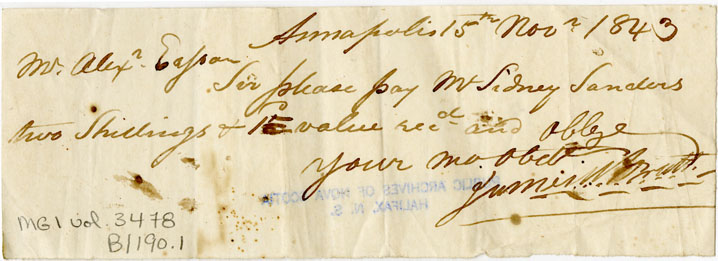 Annapolis 15th Novr 1843
Mr. Alexr. Easson
Sir please pay Mr Sidney Sanders
two Shillings & value recd and oblige
your mo. Obet
James
PUBLIC ARCHIVES OF NOVA SCOTIA
HALIFAX, N. S.
MG1 vol. 3478
B/190.1